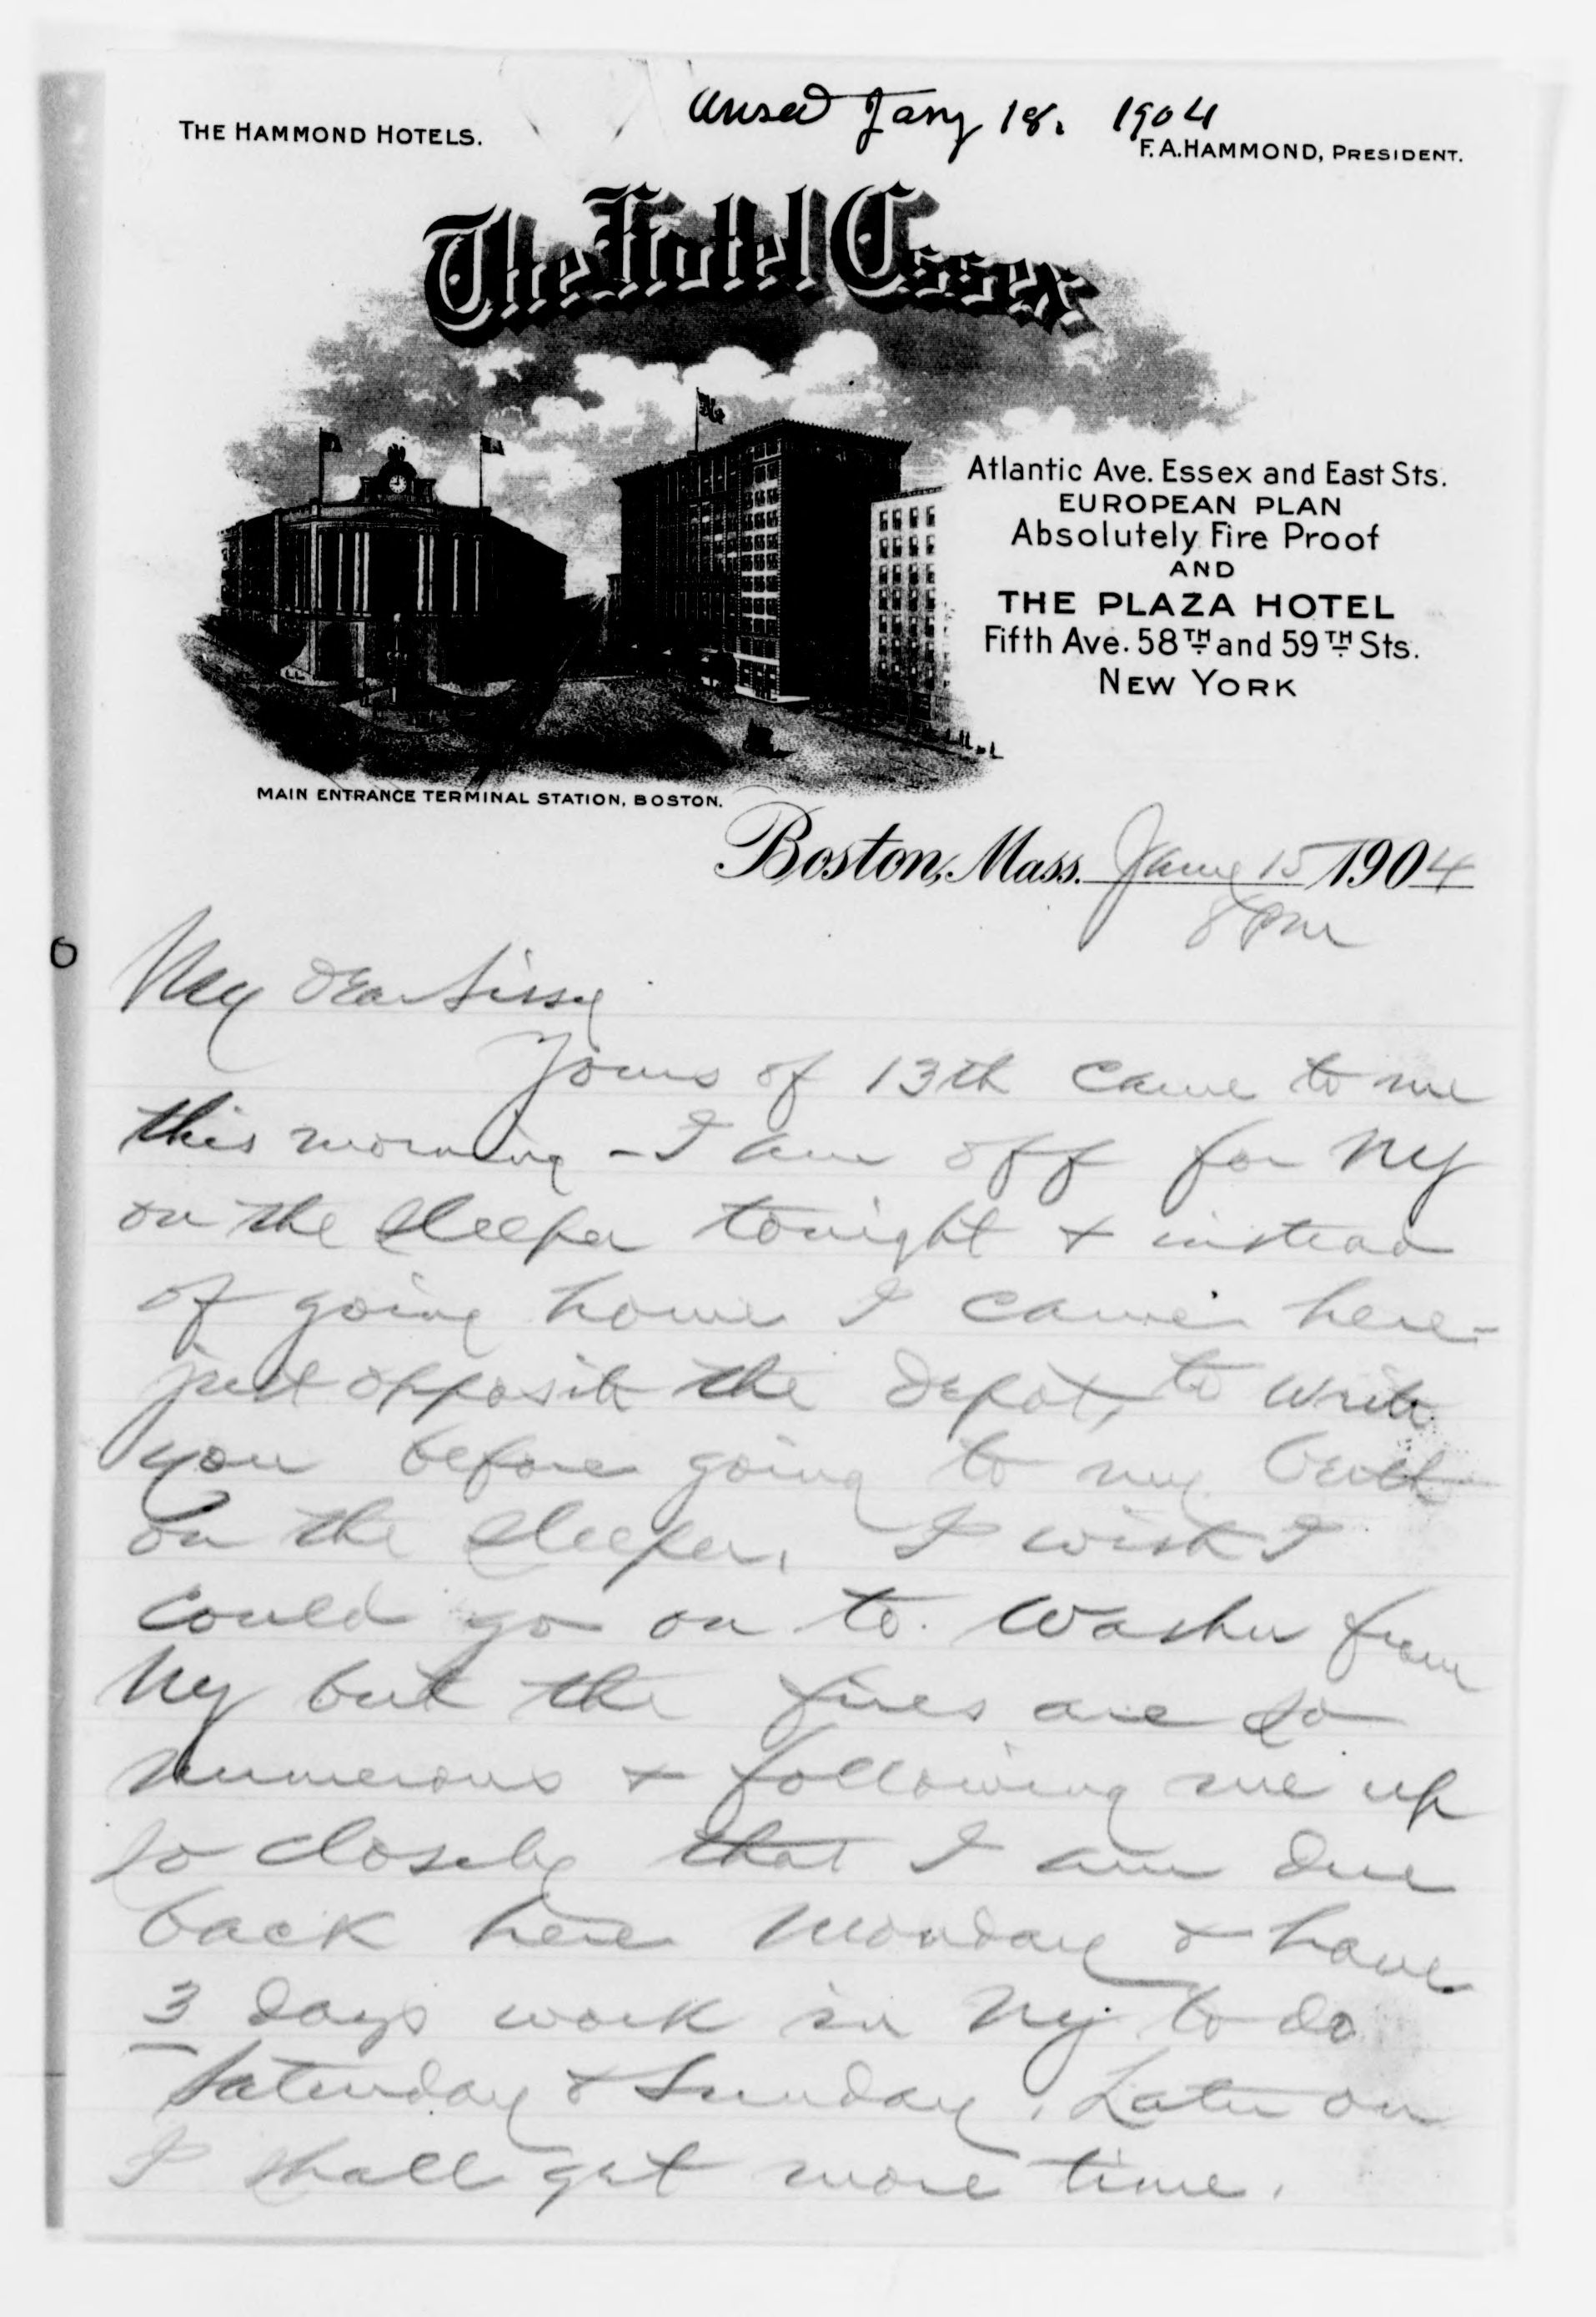 Ansed Jany 18. 1904
THE HAMMOND HOTELS.
F.A. HAMMOND, PRESIDENT.
The Hotel Essex
Atlantic Ave. Essex and East Sts.
EUROPEAN PLAN
Absolutely Fire Proof
AND
THE PLAZA HOTEL
Fifth Ave. 58TH and 59TH Sts.
NEW YORK
MAIN ENTRANCE TERMINAL STATION, BOSTON.
Boston, Mass. Jany 15 1904
8 PM
My dear Sissy
Yours of 13th came to me
this morning - I am off for NY
on the sleeper tonight & instead
of going home I came here -
just opposite the depot, to write
you before going to my berth
on the sleeper. I wish I
could go on to Washn from
NY but the fires are so
numerous & following me up
so closely that I am due
back here Monday & have
3 days work in NY to do
Saturday & Sunday. Later on
I shall get more time.